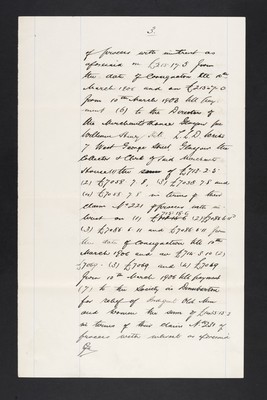 3.
of process with interest as
aforesaid on £215.17.3 from
the date of Consignation till 10th
March 1906 and on
from 10th March 1906 till pay-
ment (6) to the Director of
the Merchants House Glasgow per
William Henry Hill L.L.D. Writer
7 West George Street, Glasgow the
Collector & Clerk of said Merchants
House (1) the sum of £718.2.5
(2) £7058.7.8, (3) £7058.7.8 and
(4) £7058.7.8 in terms of their
claim No 221 of process with in-
terest on (1) (2) £7086.6.11
(3) £7086.6.11 and £7086.6.11 from
the date of consignation till 10th
March 1906 and on £714.3.10 (2)
£7069 (3) £7069 and (4) £7069
from 10th March 1906 till payment
(7) to the Society in Dumbarton
for relief of Indigent Old Men
and Women the sum of
in terms of their claim No 231 of
process with interest as aforesaid